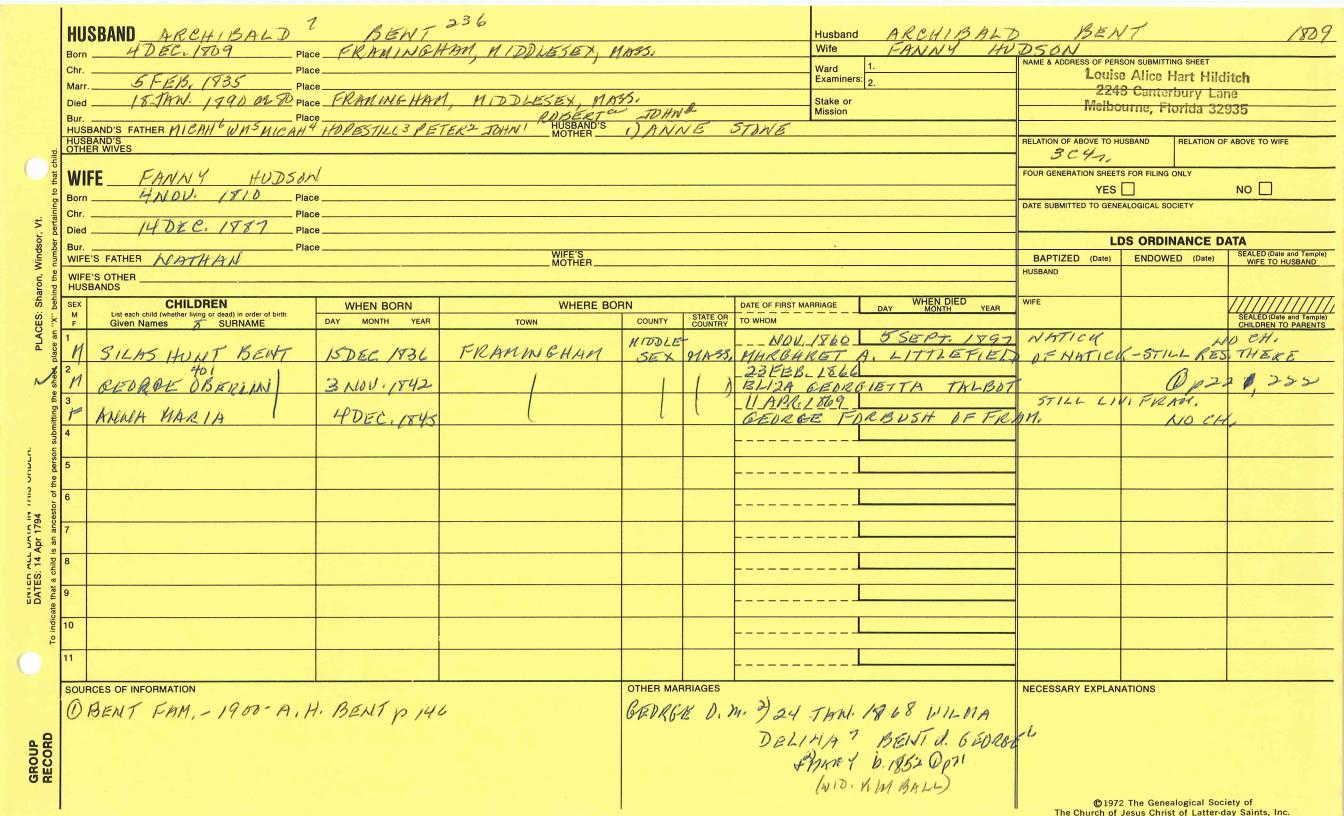 HUSBAND ARCHIBALD 7 BENT 236
Born 4 DEC. 1809 Place FRAMINGHAM, MIDDLESEX, MASS.
Chr. Place
Marr. 5 FEB. 1835 Place
Died 18 JAN. 1890 OR 80 Place FRAMINGHAM, MIDDLESEX, MASS.
Bur. Place ROBERT a JOHN a
HUSBAND'S FATHER MICAH 6 WM 5 MICAH 4 HOPESTILL 3 PETER 2 JOHN 1 HUSBAND'S MOTHER 1) ANNE STONE
HUSBAND'S OTHER WIVES
Husband ARCHIBALD BENT 1809
Wife FANNY HUDSON
Ward Examiners: 1.
2.
Stake or Mission
NAME & ADDRESS OF PERSON SUBMITTING SHEET
Louise Alice Hart Hilditch
2248 Canterbury Lane
Melbourne, Florida 32935
RELATION OF ABOVE TO HUSBAND RELATION OF ABOVE TO WIFE
3C4r.
FOUR GENERATION SHEETS FOR FILING ONLY
YES NO
DATE SUBMITTED TO GENEALOGICAL SOCIETY
WIFE FANNY HUDSON
Born 4 NOV. 1810 Place
Chr. Place
Died 14 DEC. 1887 Place
Bur. Place
WIFE'S FATHER NATHAN WIFE'S MOTHER
WIFE'S OTHER HUSBANDS
LDS ORDINANCE DATA
BAPTIZED (Date) ENDOWED (Date) SEALED (Date and Temple) WIFE TO HUSBAND
HUSBAND
WIFE
SEALED (Date and Temple) CHILDREN TO PARENTS
SEX M F CHILDREN WHEN BORN WHERE BORN DATE OF FIRST MARRIAGE WHEN DIED
List each child (whether living or dead) in order of birth
Given Names 8 SURNAME DAY MONTH YEAR TOWN COUNTY STATE OR COUNTRY TO WHOM DAY MONTH YEAR
1 NOV. 1860 5 SEPT. 1897 NATICK NO CH.
M SILAS HUNT BENT 15 DEC. 1836 FRAMINGHAM MIDDLE-SEX MASS. MARGARET A. LITTLEFIELD OF NATICK - STILL RES. THERE
2 401 23 FEB. 1866
M GEORGE OBERLIN 3 NOV. 1842 ELIZA GEORGIETTA TALBOT ① p 221, 222
3 11 APR. 1869 STILL LIV. FRAM.
F ANNA MARIA 4 DEC. 1845 GEORGE FORBUSH OF FRAM. NO CH.
4
5
6
7
8
9
10
11
SOURCES OF INFORMATION
① BENT FAM. - 1900 - A. H. BENT p 146
OTHER MARRIAGES
GEORGE O. M. 2) 24 JAN. 1868 WILMA
DELIMA 7 BENT d. GEORGE 6
b. 1852 ① p 71
(WID. KIMBALL)
NECESSARY EXPLANATIONS
©1972 The Genealogical Society of
The Church of Jesus Christ of Latter-day Saints, Inc.
PLACES: Sharon, Windsor, Vt.
To indicate that a child is an ancestor of the person submitting the sheet, place an "X" behind the number pertaining to that child.
ENTER ALL DATA IN THIS ORDER:
DATES: 14 Apr 1794
GROUP RECORD